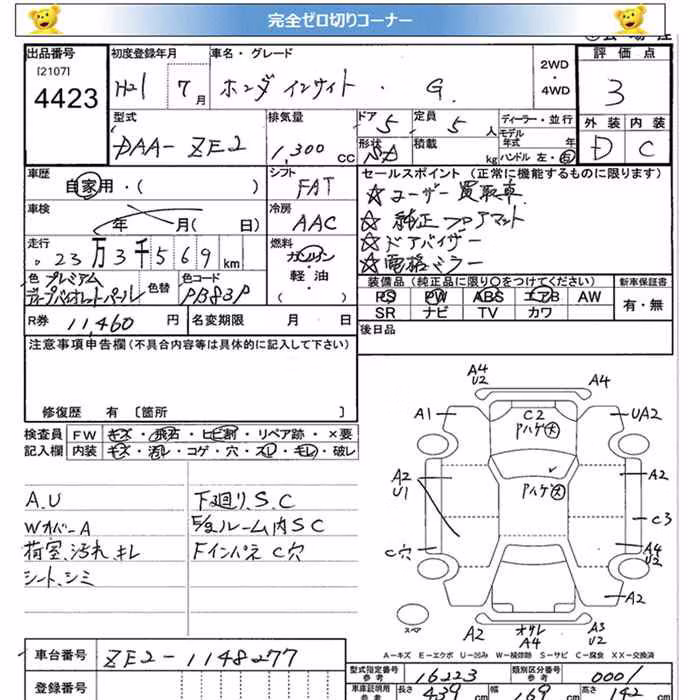 完全ゼロ切りコーナー
出品番号 初度登録年月 車名・グレード 2WD・4WD 評価点
[2107]
4423 H21 7月 ホンダ インサイト・G 3
型式 排気量 ドア 定員 ディーラー・並行 外装 内装
DAA-ZE2 1,300CC 5 5人 モデル年式 年 D C
形状 積載 kg ハンドル 左・右
車歴 シフト セールスポイント (正常に機能するものに限ります)
自家用・( ) FAT ☆ユーザー買取車
車検 冷房 ☆純正フロアマット
年 月( 日) AAC ☆ドアバイザー
走行 燃料 ☆電格ミラー
23万3千569km ガソリン
軽・油
( )
色 プレミアム 色替 色コード
ディープバイオレットパール PB83P
装備品 (純正品に限り○をつけてください) 新車保証書
PS PW ABS エアB AW 有・無
SR ナビ TV カワ
R券 11,460円 名変期限 月 日 後日品
注意事項申告欄 (不具合内容等は具体的に記入して下さい)
修復歴 有 〔箇所 〕
検査員 FW キズ・飛石・ヒビ割・リペア跡・×要
記入欄 内装 キズ・汚レ・コゲ・穴・スレ・キレ・破レ
A.U 下廻り.S.C
WカバーA E/gルーム内SC
荷室.汚れ キレ Fインパネ C穴
シート.シミ
A4 U2 A4
A1 C2 UA2
Pハゲ大
A2 U1 Pハゲ大 A2
C3
C穴 A4 U2
スペア A2 オサレ A4 A3 U2 A2
A-キズ E-エクボ U-凹み W-補修跡 S-サビ C-腐食 XX-交換済
車台番号 ZE2-1148277 型式指定番号 参考 16223 類別区分番号 参考 0001
登録番号 車庫証明用 参考 長さ 439cm 幅 169cm 高さ 142cm